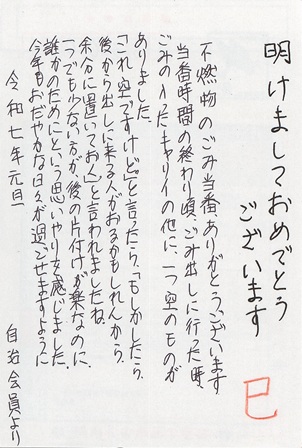 明けましておめでとう
ございます
巳
不燃物のごみ当番、ありがとうございます
当番時間の終わり頃、ごみ出しに行った時、
ごみの入ったキャリイの他に、一つ空のものが
ありました。
「これ空ですけど」と言ったら、「もしかしたら、
後から出しに来る人がおるかもしれんから、
余分に置いておく」と言われましたね。
一つでも少ない方が、後の片付けが楽なのに、
誰かのためにという思いやりを感じました。
今年もおだやかな日々が過ごせますように
令和七年元旦
自治会員より